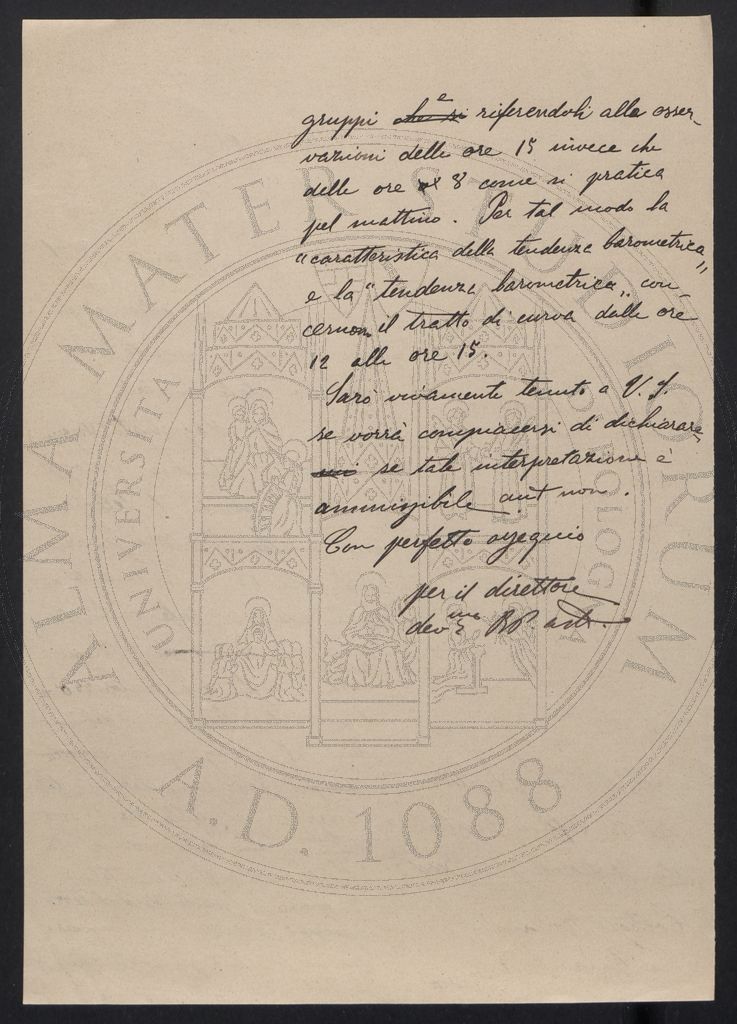 gruppi e riferendoli alle osser-
vazioni delle ore 15 invece che
delle ore 8 come si pratica
pel mattino. Per tal modo la
"caratteristica della tendenza barometrica„
e la "tendenza barometrica„ con-
cernono il tratto di curva dalle ore
12 alle ore 15.
Sarò vivamente tenuto a V. S.
se vorrà compiacersi di dichiarare
se tale interpretazione è
ammissibile aut non.
Con perfetto ossequio
per il direttore
dev.mo
ALMA MATER STUDIORUM
UNIVERSITA DI BOLOGNA
A.D. 1088